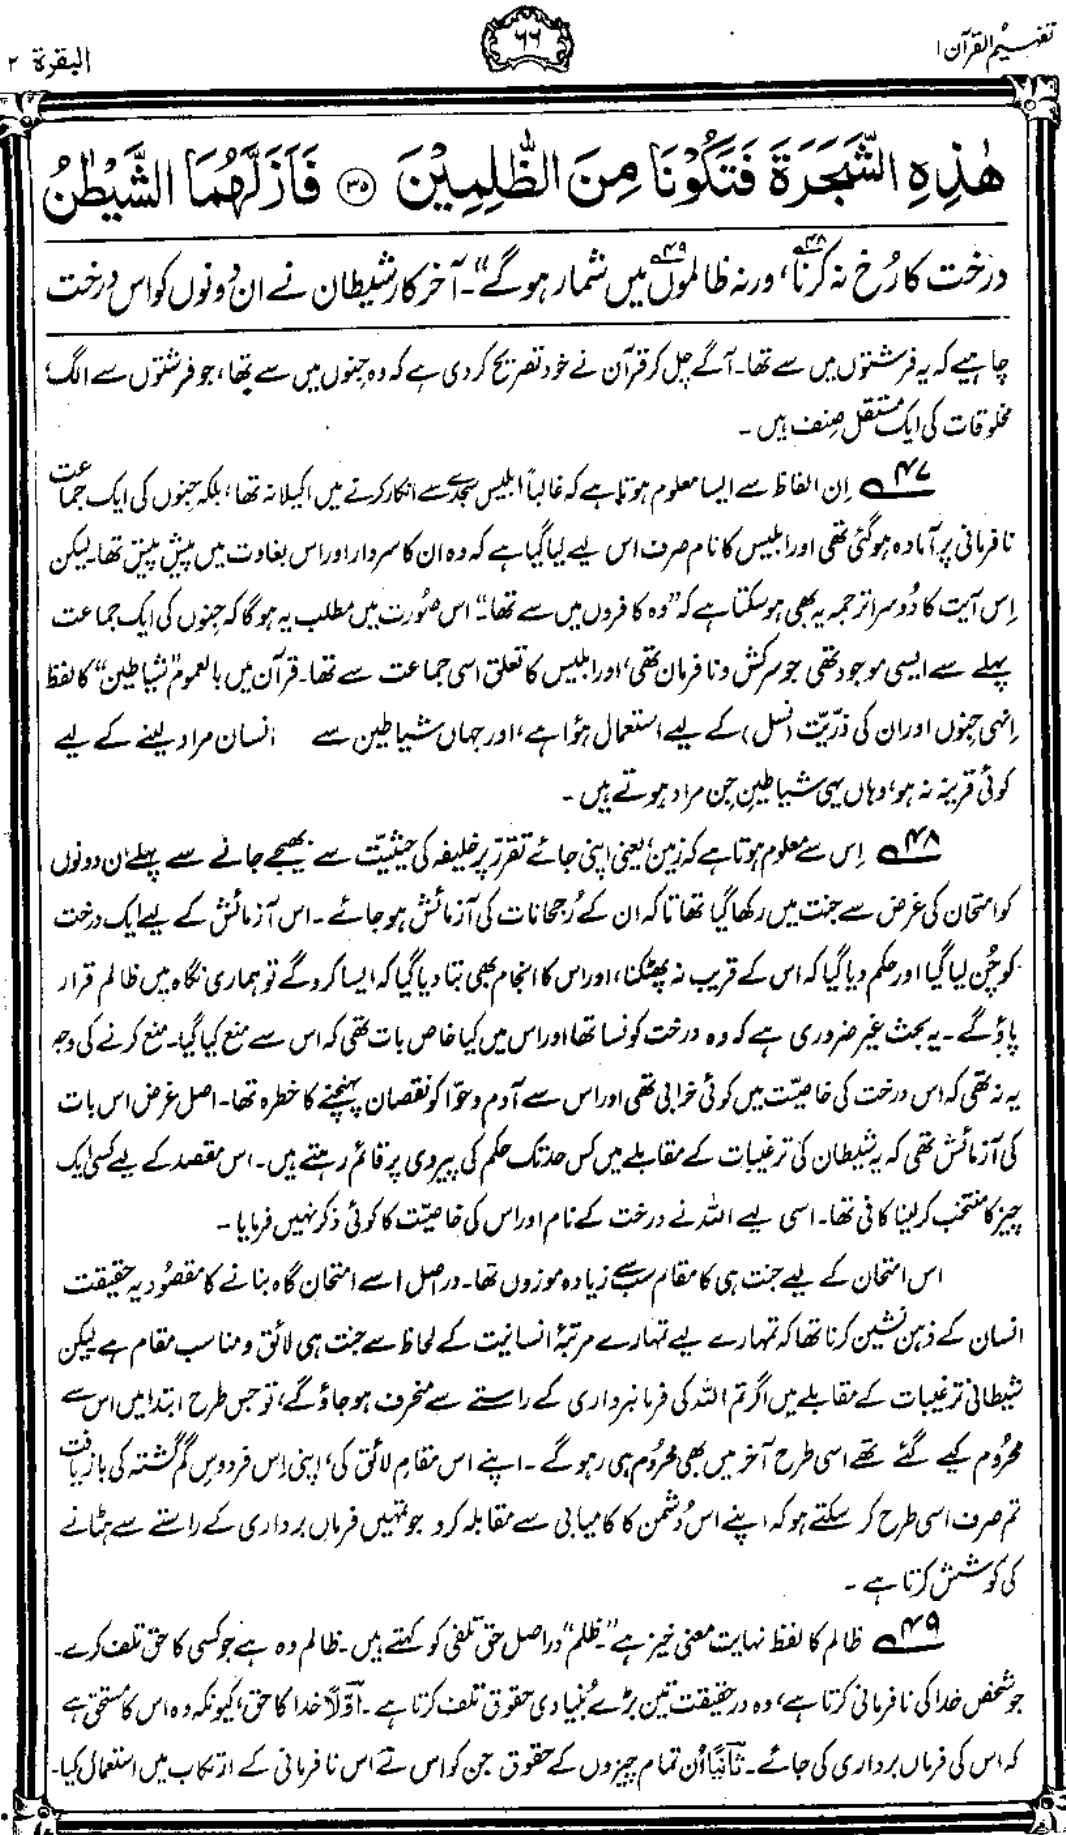 تفہیم القرآن ۱
۶۶
البقرة ۲
هٰذِهِ الشَّجَرَةَ فَتَكُوْنَا مِنَ الظّٰلِمِيْنَ ﴿۳۵﴾ فَاَزَلَّهُمَا الشَّيْطٰنُ
درخت کا رُخ نہ کرنا۴۸، ورنہ ظالموں۴۹ میں شمار ہو گے“۔ آخر کار شیطان نے ان دونوں کو اس درخت
چاہیے کہ یہ فرشتوں میں سے تھا۔ آگے چل کر قرآن نے خود تصریح کر دی ہے کہ وہ جِنوں میں سے تھا، جو فرشتوں سے الگ،
مخلوقات کی ایک مستقل صِنف ہیں۔
۴۷ اِن الفاظ سے ایسا معلوم ہوتا ہے کہ غالباً ابلیس سجدے سے انکار کرنے میں اکیلا نہ تھا، بلکہ جِنوں کی ایک جماعت
نافرمانی پر آمادہ ہو گئی تھی اور ابلیس کا نام صرف اس لیے لیا گیا ہے کہ وہ ان کا سردار اور اس بغاوت میں پیش پیش تھا۔ لیکن
اِس آیت کا دُوسرا ترجمہ یہ بھی ہو سکتا ہے کہ ”وہ کافروں میں سے تھا“۔ اس صُورت میں مطلب یہ ہو گا کہ جِنوں کی ایک جماعت
پہلے سے ایسی موجود تھی جو سرکش و نافرمان تھی، اور ابلیس کا تعلق اسی جماعت سے تھا۔ قرآن میں بالعموم ”شیاطین“ کا لفظ
اِنہی جِنوں اور ان کی ذرّیّت (نسل) کے لیے استعمال ہؤا ہے، اور جہاں شیاطین سے انسان مراد لینے کے لیے
کوئی قرینہ نہ ہو، وہاں یہی شیاطینِ جِن مراد ہوتے ہیں۔
۴۸ اِس سے معلوم ہوتا ہے کہ زمین، یعنی اپنی جائے تقرر پر خلیفہ کی حیثیّت سے بھیجے جانے سے پہلے اِن دونوں
کو امتحان کی غرض سے جنت میں رکھا گیا تھا تاکہ ان کے رُجحانات کی آزمائش ہو جائے۔ اس آزمائش کے لیے ایک درخت
کو چُن لیا گیا اور حکم دیا گیا کہ اس کے قریب نہ پھٹکنا، اور اس کا انجام بھی بتا دیا گیا کہ ایسا کرو گے تو ہماری نگاہ میں ظالم قرار
پاؤ گے۔ یہ بحث غیر ضروری ہے کہ وہ درخت کونسا تھا اور اس میں کیا خاص بات تھی کہ اس سے منع کیا گیا۔ منع کرنے کی وجہ
یہ نہ تھی کہ اس درخت کی خاصیّت میں کوئی خرابی تھی اور اس سے آدم و حوّا کو نقصان پہنچنے کا خطرہ تھا۔ اصل غرض اس بات
کی آزمائش تھی کہ یہ شیطان کی ترغیبات کے مقابلے میں کس حد تک حکم کی پیروی پر قائم رہتے ہیں۔ اس مقصد کے لیے کسی ایک
چیز کا منتخب کر لینا کافی تھا۔ اسی لیے اللہ نے درخت کے نام اور اس کی خاصیّت کا کوئی ذکر نہیں فرمایا۔
اس امتحان کے لیے جنت ہی کا مقام سب سے زیادہ موزوں تھا۔ دراصل اسے امتحان گاہ بنانے کا مقصُود یہ حقیقت
انسان کے ذہن نشین کرنا تھا کہ تمہارے لیے تمہارے مرتبۂ انسانیت کے لحاظ سے جنت ہی لائق و مناسب مقام ہے۔ لیکن
شیطانی ترغیبات کے مقابلے میں اگر تم اللہ کی فرمانبرداری کے راستے سے منحرف ہو جاؤ گے، تو جس طرح ابتدا میں اس سے
محرُوم کیے گئے تھے اسی طرح آخر میں بھی محرُوم ہی رہو گے۔ اپنے اس مقامِ لائق کی، اپنی اِس فردوسِ گم گشتہ کی بازیافت
تم صرف اسی طرح کر سکتے ہو کہ اپنے اس دُشمن کا کامیابی سے مقابلہ کرو جو تمہیں فرماں برداری کے راستے سے ہٹانے
کی کوشش کرتا ہے۔
۴۹ ظالم کا لفظ نہایت معنی خیز ہے۔ ”ظلم“ دراصل حق تلفی کو کہتے ہیں۔ ظالم وہ ہے جو کسی کا حق تلف کرے۔
جو شخص خدا کی نافرمانی کرتا ہے، وہ درحقیقت تین بڑے بُنیادی حقوق تلف کرتا ہے۔ اوّلاً خدا کا حق، کیونکہ وہ اس کا مستحق ہے
کہ اس کی فرماں برداری کی جائے۔ ثانیاً اُن تمام چیزوں کے حقوق جن کو اس نے اس نافرمانی کے ارتکاب میں استعمال کیا۔